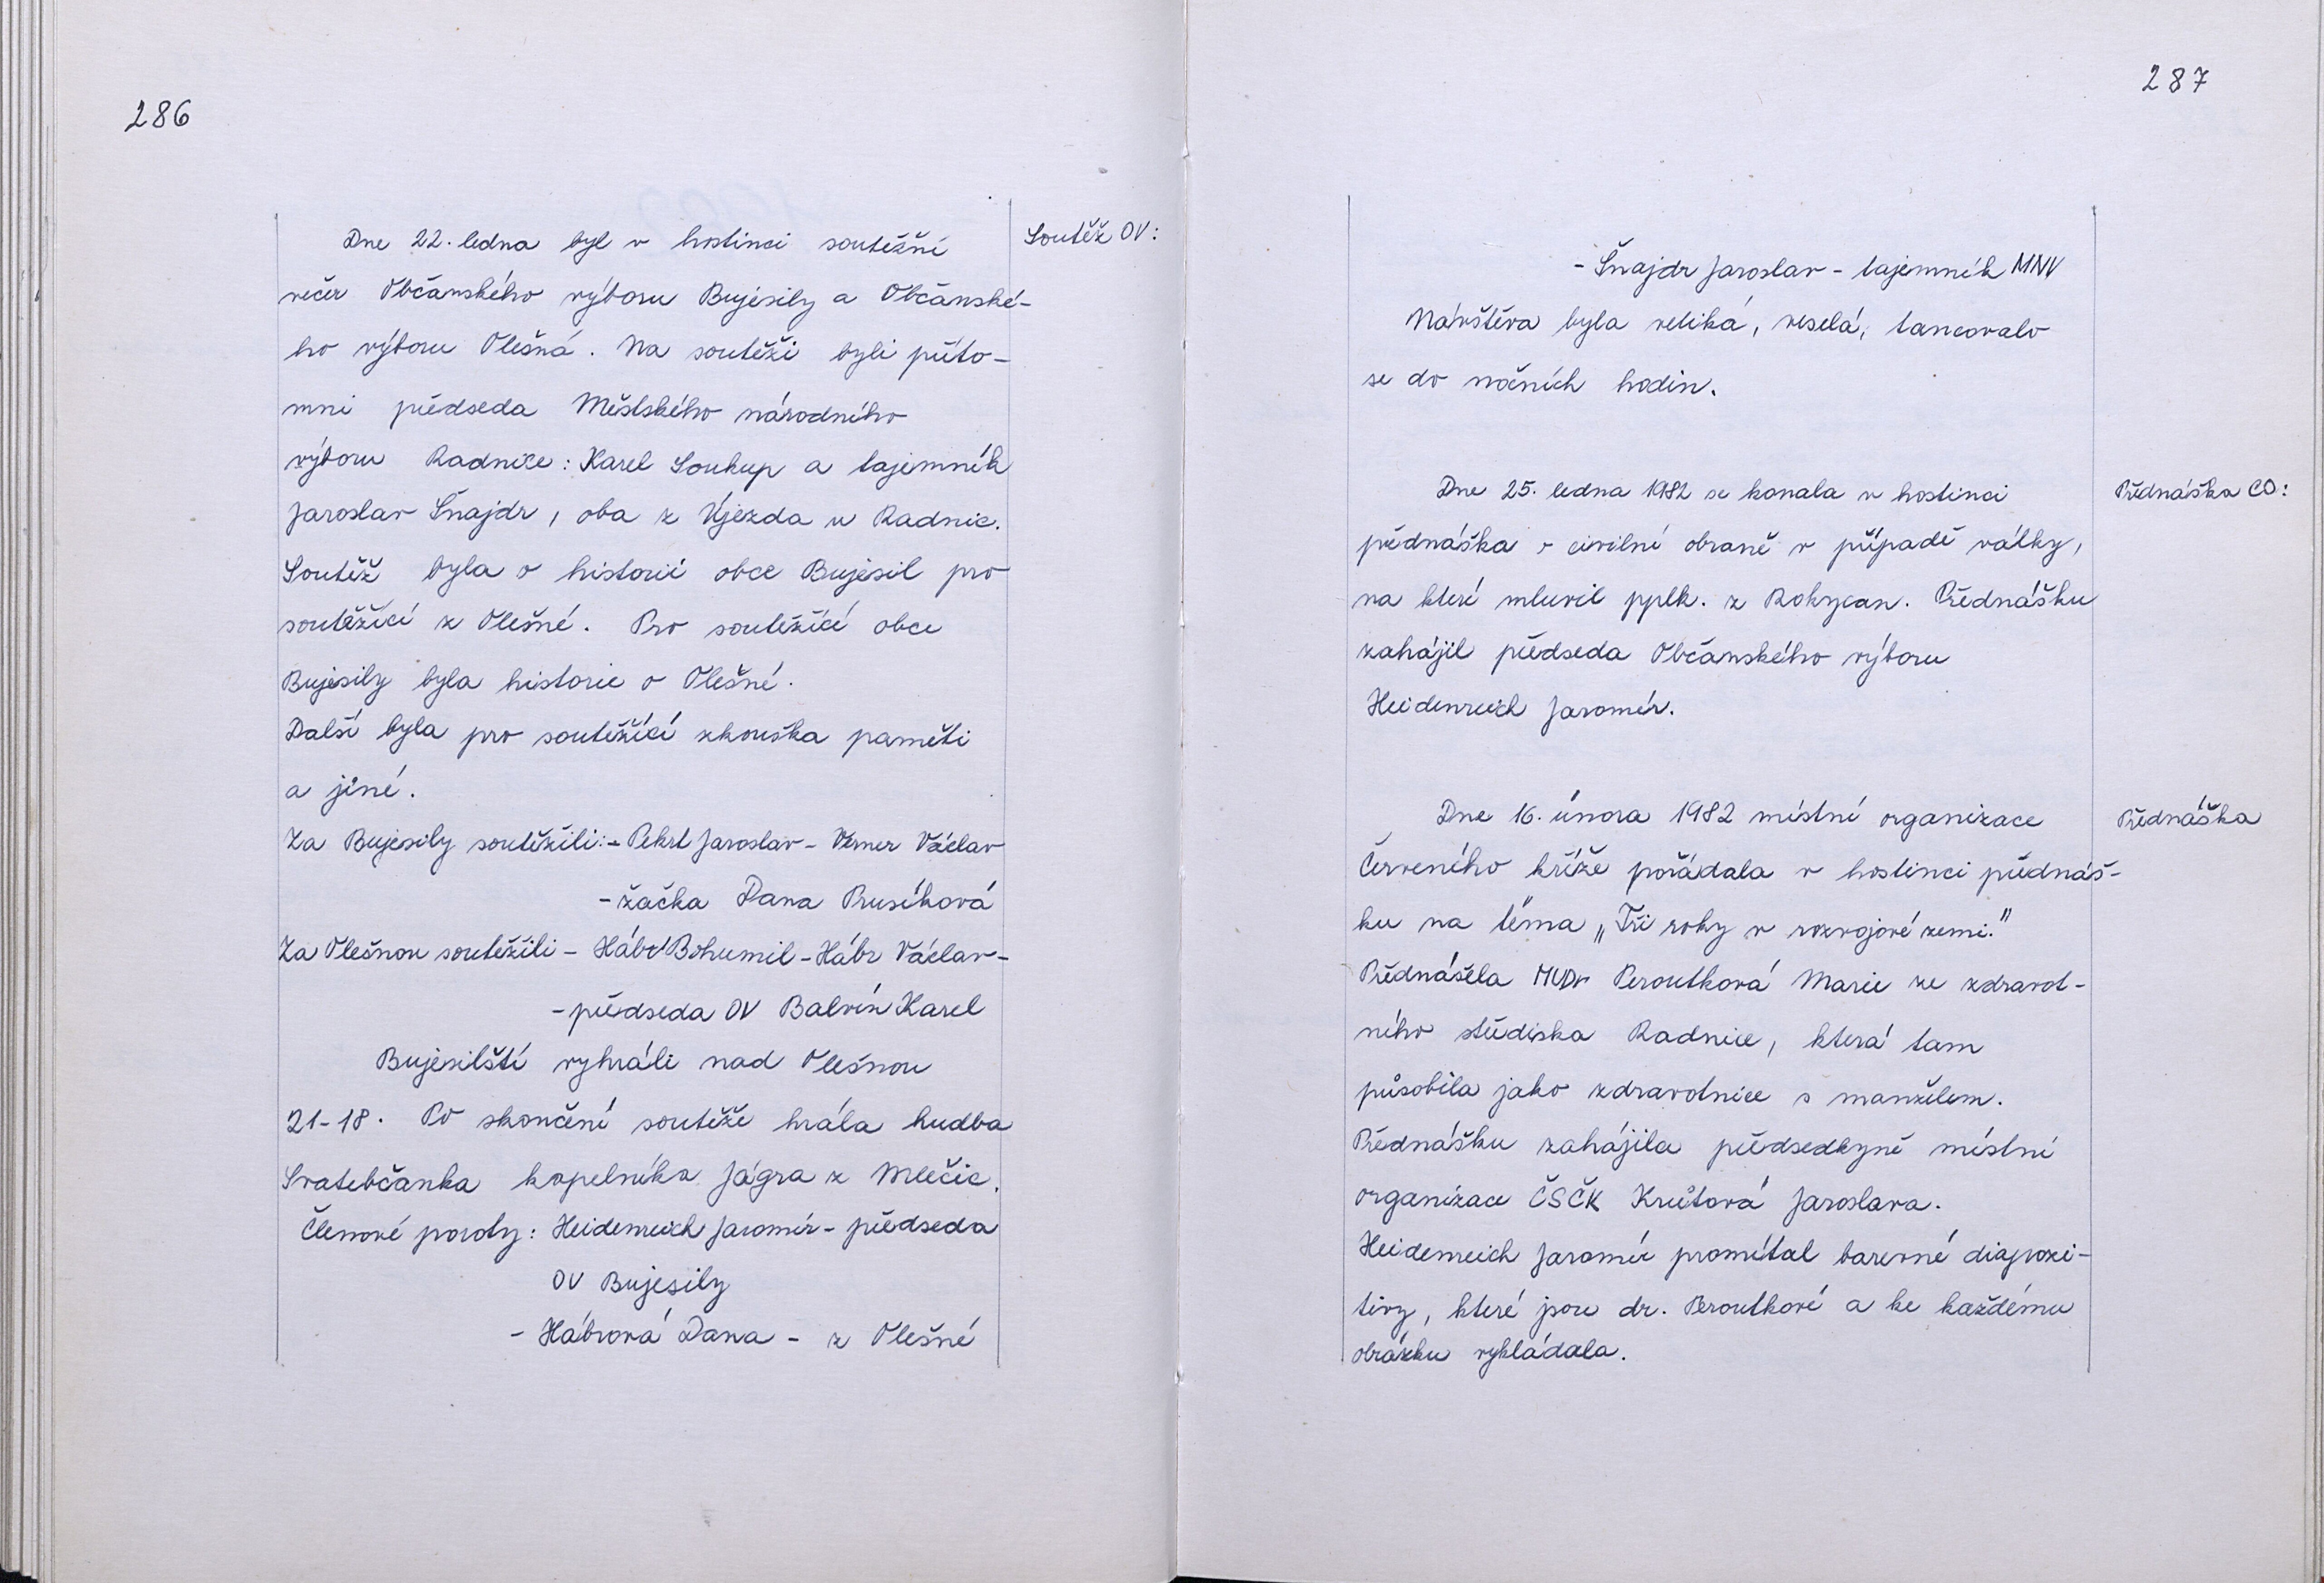 286
Soutěž OV:
Dne 22. ledna byl v hostinci soutěžní
večer Občanského výboru Bujesily a Občanské-
ho výboru Olešná. Na soutěži byli příto-
mni předseda Městského národního
výboru Radnice: Karel Soukup a tajemník
Jaroslav Šnajdr, oba z Újezda u Radnic.
Soutěž byla o historii obce Bujesil pro
soutěžící z Olešné. Pro soutěžící obce
Bujesily byla historie o Olešné.
Další byla pro soutěžící zkouška paměti
a jiné.
Za Bujesily soutěžili: - Pekrt Jaroslav - Verner Václav
- žačka Dana Prusíková
Za Olešnou soutěžili - Hábr Bohumil - Hábr Václav -
- předseda OV Balvín Karel
Bujesilští vyhráli nad Olešnou
21-18. Po skončení soutěže hrála hudba
Svatebčanka kapelníka Jágra z Mlečic.
Členové poroty: Heidenreich Jaromír - předseda
OV Bujesily
- Hábrová Dana - z Olešné
287
- Šnajdr Jaroslav - tajemník MNV
Návštěva byla veliká, veselá, tancovalo
se do nočních hodin.
Přednáška CO:
Dne 25. ledna 1982 se konala v hostinci
přednáška o civilní obraně v případě války,
na které mluvil pplk. z Rokycan. Přednášku
zahájil předseda Občanského výboru
Heidenreich Jaromír.
Přednáška
Dne 16. února 1982 místní organizace
Červeného kříže pořádala v hostinci přednáš-
ku na téma „Tři roky v rozvojové zemi."
Přednášela MUDr Peroutková Marie ze zdravot-
ního střediska Radnice, která tam
působila jako zdravotnice s manželem.
Přednášku zahájila předsedkyně místní
organizace ČSČK Kreitová Jaroslava.
Heidenreich Jaromír promítal barevné diapozi-
tivy, které jsou dr. Peroutkové a ke každému
obrázku vykládala.